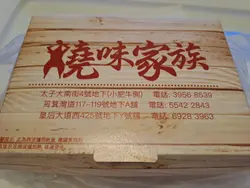 燒味家族
太子大南街4號地下(小肥牛側) 電話: 3956 8539
筲箕灣道117-119號地下A舖 電話: 5542 2843
皇后大道西425號地下Y號舖 電話: 6328 3963